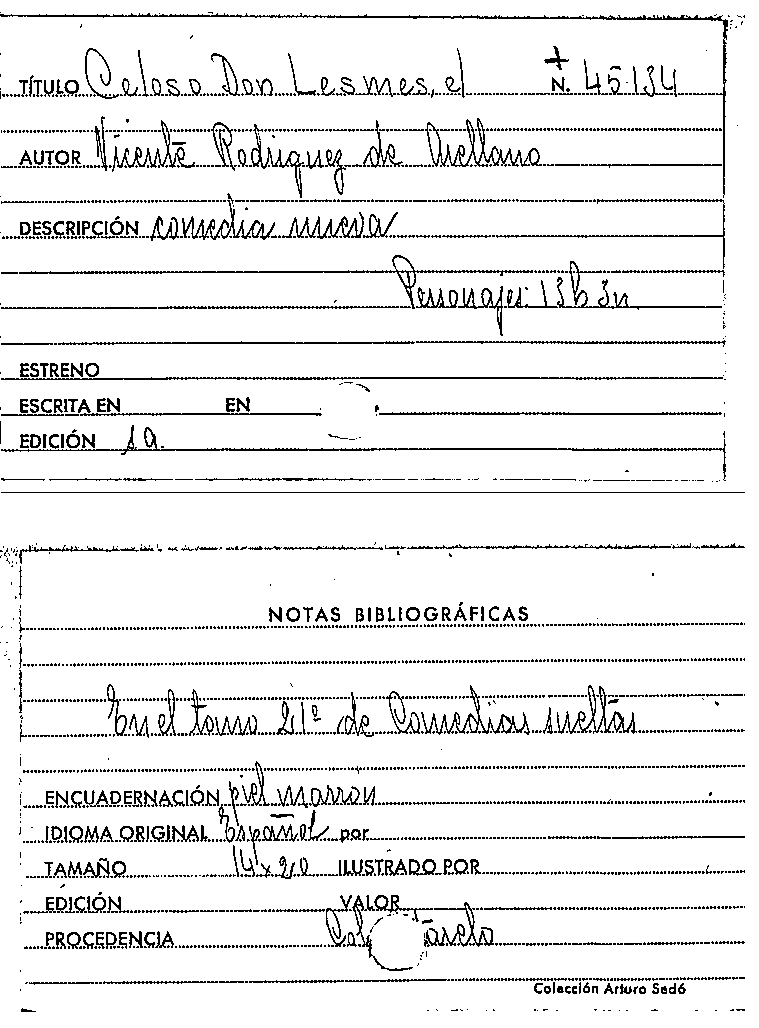 TÍTULO Celoso Don Lesmes, el + N. 45134
AUTOR Vicente Rodriguez de Arellano
DESCRIPCIÓN comedia nueva
Personajes: 13h 3n
ESTRENO
ESCRITA EN EN
EDICIÓN s.a.
NOTAS BIBLIOGRÁFICAS
En el tomo 21º de Comedias sueltas
ENCUADERNACIÓN piel marron
IDIOMA ORIGINAL Español por
TAMAÑO 14x20 ILUSTRADO POR
EDICIÓN VALOR
PROCEDENCIA
Colección Arturo Sedó